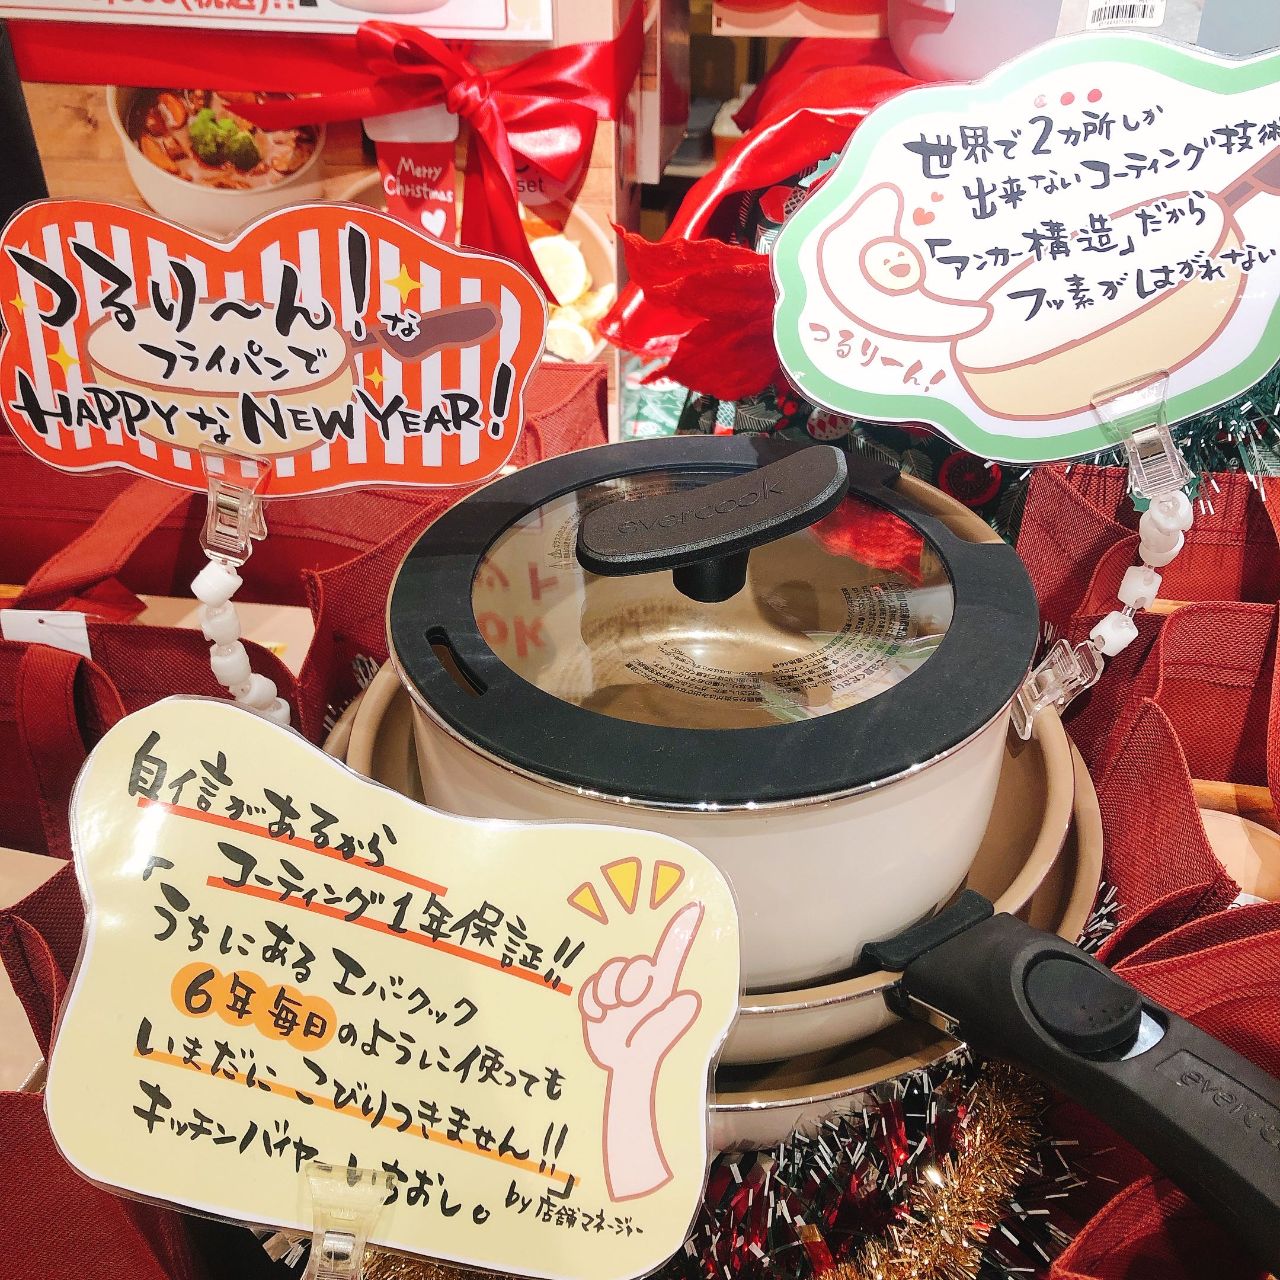 (税込)!!
Merry
Christmas
set
世界で2ヵ所しか
出来ないコーティング技術
「アンカー構造」だから
フッ素がはがれない
つるりーん!
つるり〜ん!な
フライパンで
HAPPYなNEW YEAR!
evercook
自信があるから
コーティング1年保証!!
「うちにあるエバークック
6年毎日のように使っても
いまだにこびりつきません!!」
キッチンバイヤーいちおし。
by店舗マネージャー
evercook